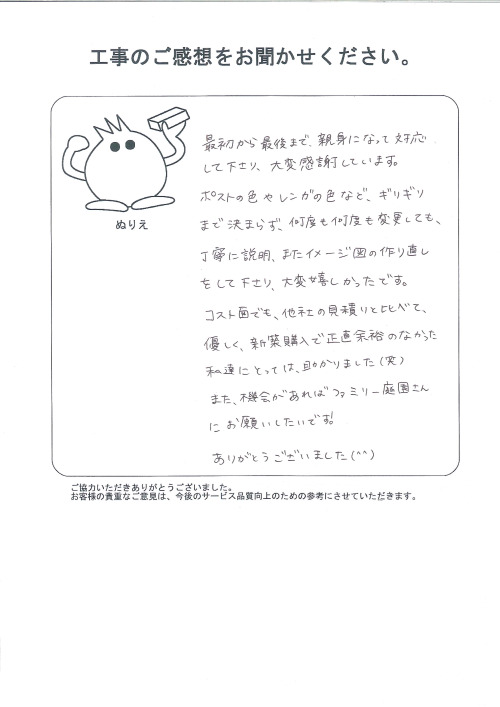 工事のご感想をお聞かせください。
最初から最後まで、親身になって対応
して下さり、大変感謝しています。
ポストの色やレンガの色など、ギリギリ
まで決まらず、何度も何度も変更しても、
丁寧に説明、またイメージ図の作り直し
をして下さり、大変嬉しかったです。
コスト面でも、他社の見積りと比べて、
優しく、新築購入で正直余裕のなかった
私達にとっては、助かりました(笑)
また、機会があればファミリー庭園さん
にお願いしたいです!
ありがとうございました(^^)
ぬりえ
ご協力いただきありがとうございました。
お客様の貴重なご意見は、今後のサービス品質向上のための参考にさせていただきます。